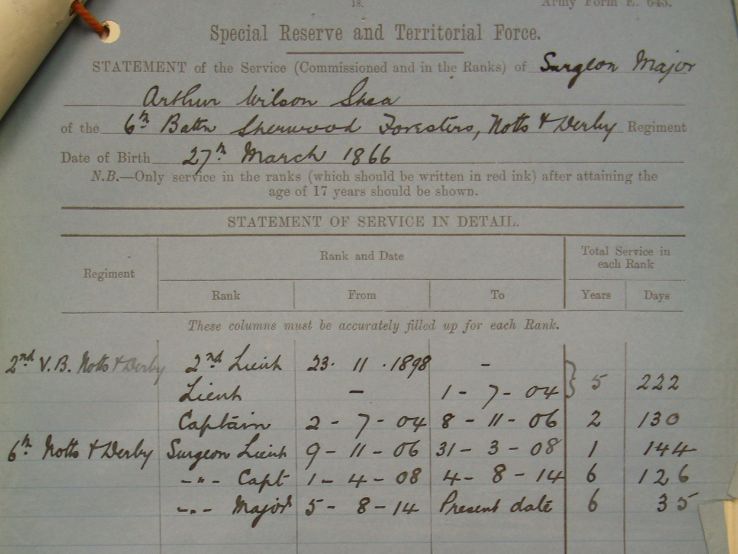 18.
Army Form E. 643.
Special Reserve and Territorial Force.
STATEMENT of the Service (Commissioned and in the Ranks) of Surgeon Major
Arthur Wilson Shea
of the 6th Battn Sherwood Foresters, Notts & Derby Regiment
Date of Birth 27th March 1866
N.B.—Only service in the ranks (which should be written in red ink) after attaining the
age of 17 years should be shown.
STATEMENT OF SERVICE IN DETAIL.
Regiment Rank and Date Total Service in
each Rank
Rank From To Years Days
These columns must be accurately filled up for each Rank.
2nd V.B. Notts & Derby 2nd Lieut 23. 11 . 1898 -
Lieut - 1 - 7 - 04 } 5 222
Captain 2 - 7 - 04 8 - 11 - 06 2 130
6th Notts & Derby Surgeon Lieut 9 - 11 - 06 31 - 3 - 08 1 144
-"- Capt 1 - 4 - 08 4 - 8 - 14 6 126
-"- Major 5 - 8 - 14 Present date 6 35